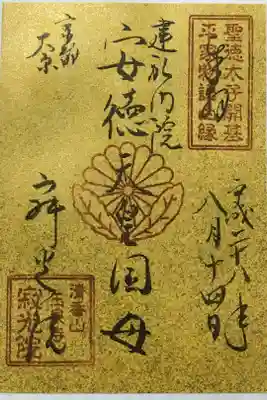 奉拝
聖徳太子開基
平家物語由縁
平成二十八年
八月十四日
建礼門院
安徳天皇国母
京都
大原
寂光院
清香山
玉泉寺
寂光院